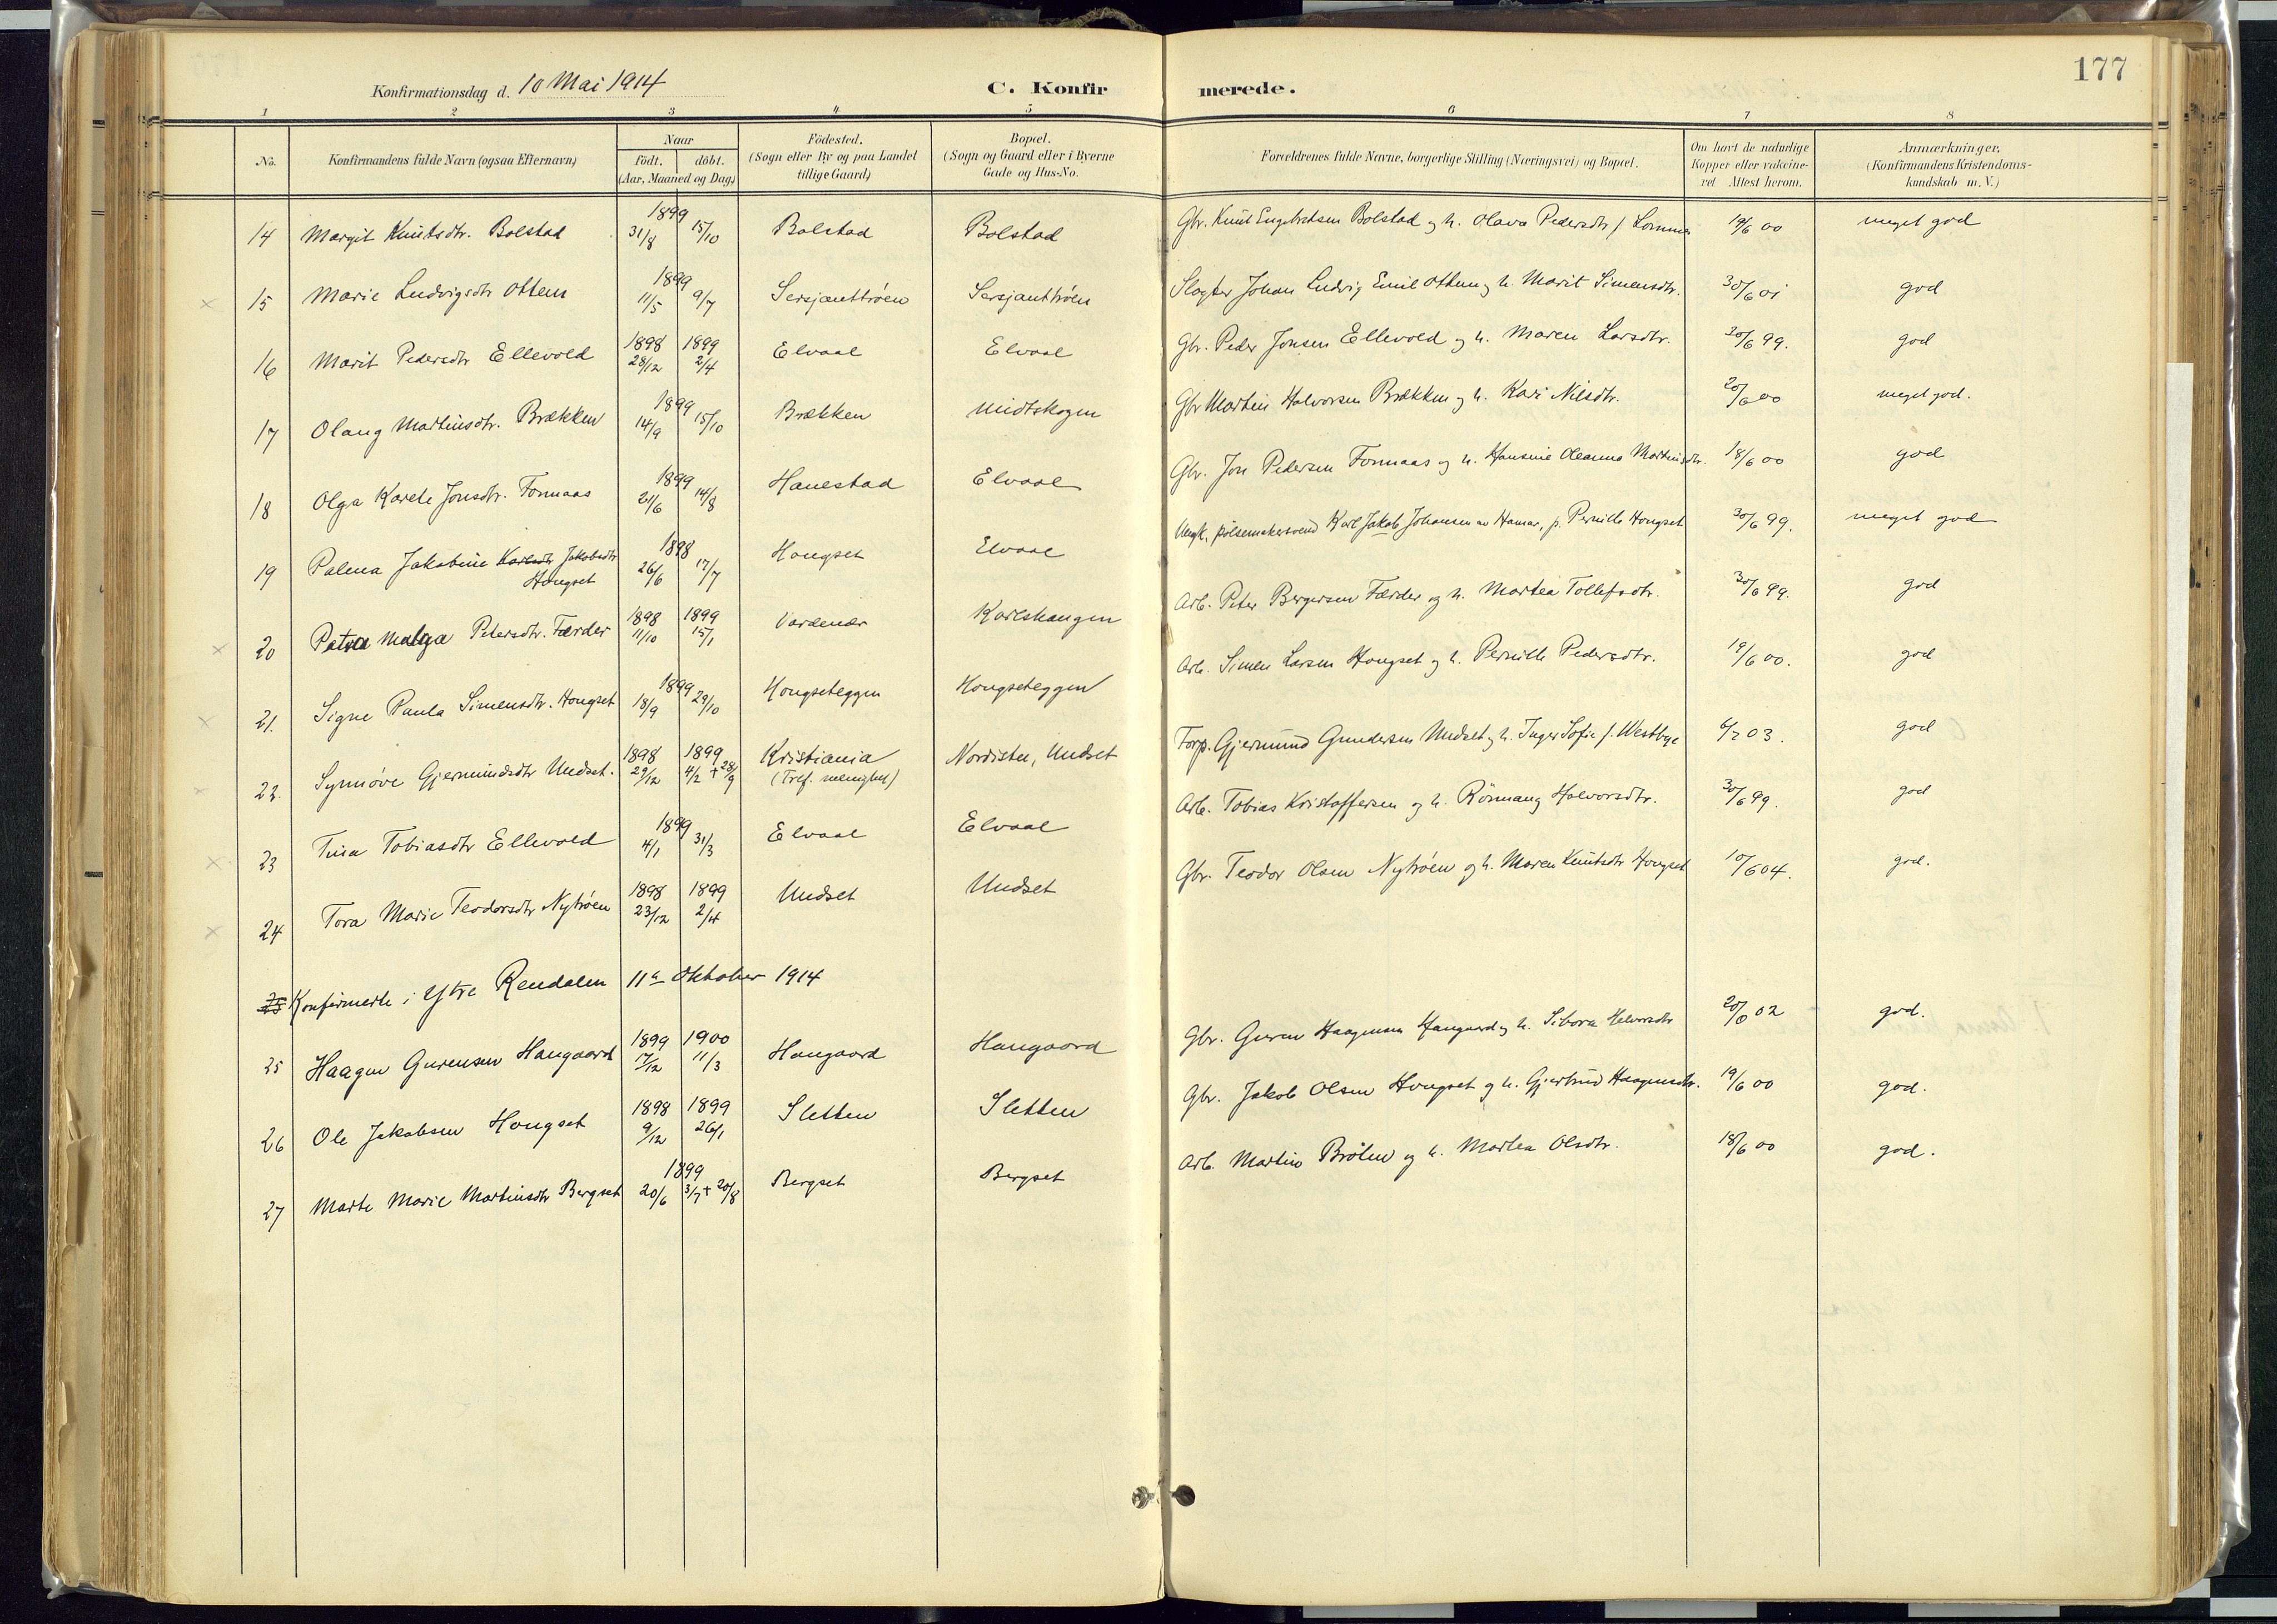 177
Konfirmationsdag d. 10 Mai 1914 C. Konfirmerede.
1 2 3 4 5 6 7 8
No. Konfirmandens fulde Navn (ogsaa Efternavn) Naar födt. döbt. (Aar, Maaned og Dag) Födested. (Sogn eller By og paa Landet tillige Gaard) Bopæl. (Sogn og Gaard eller i Byerne Gade og Hus-No. Forældrenes fulde Navne, borgerlige Stilling (Næringsvei) og Bopæl. Om havt de naturlige Kopper eller vakcineret Attest herom. Anmærkninger, (Konfirmandens Kristendomskundskab m. V.)
14 Margit Knutsdtr. Bolstad 1899 31/8 15/10 Bolstad Bolstad Gbr. Knut Engebretsen Bolstad og h. Olava Pedersdtr f. Lomnes 19/6 00 meget god
15 Marie Ludvigsdtr Ottem 1899 11/5 9/7 Sersjanttröen Sersjanttröen Slagter Johan Ludvig Emil Ottem og h. Marit Simensdtr. 30/6 01 god
16 Marit Pedersdtr Ellevold 1898 28/12 1899 2/4 Elvaal Elvaal Gbr. Peder Jonsen Ellevold og h. Maren Larsdtr. 30/6 99. god
17 Olaug Martinsdtr. Brækken 1899 14/9 15/10 Brækken Midtskogen Gbr Martin Halvorsen Brækken og h. Kari Nilsdtr. 20/6 00 meget god.
18 Olga Karete Jonsdtr. Fonnaas 1899 21/6 14/8 Hanestad Elvaal Gbr. Jon Pedersen Fonnaas og h. Hansine Oleanna Martinsdtr. 18/6 00 god
19 Palma Jakobine Karlsdtr Jakobsdtr Hongset 1898 26/6 17/7 Hongset Elvaal Ungk. pölsemakersvend Karl Jakob Johansen av Hamar, p. Pernille Hongset 30/6 99. meget god
20 Petra Malga Petersdtr. Færder 1898 11/10 1899 15/1 Vardenær Karlshaugen Arb. Peter Bergersen Færder og h. Martea Tollefsdtr. 30/6 99. god
21. Signe Paula Simensdtr. Hongset 1899 18/9 29/10 Hongseteggen Hongseteggen Arb. Simen Larsen Hongset og h. Pernille Pedersdtr. 19/6 00. god
22. Synnöve Gjermundsdtr Undset. 1898 29/12 1899 4/2 + 28/9 Kristiania (Tref. menighet) Nordistu, Undset Forp. Gjermund Gundersen Undset og h. Inger Sofie f. Westbye 6/7 03. god
23 Tina Tobiasdtr Ellevold 1899 4/1 31/3 Elvaal Elvaal Arb. Tobias Kristoffersen og h. Rönnaug Halvorsdtr. 30/6 99. god
24 Tora Marie Teodorsdtr Nytröen 1898 23/12 1899 2/4 Undset Undset Gbr. Teodor Olsen Nytröen og h. Maren Knutsdtr Hongset 10/6 04. god.
25 Konfirmerte i Ytre Rendalen 11te Oktober 1914
25 Haagen Gurensen Haugaard 1899 17/12 1900 11/3 Haugaard Haugaard Gbr. Guren Haagensen Haugaard og h. Sibora Halvorsdtr 20/6 02 god.
26 Ole Jakobsen Hongset 1898 9/12 1899 26/1 Sletten Sletten Gbr. Jakob Olsen Hongset og h. Gjertrud Haagensdtr. 19/6 00 god.
27 Marte Marie Martinsdtr Bergset 1899 20/6 3/7 + 20/8 Bergset Bergset Arb. Martin Bröten og h. Martea Olsdtr. 18/6 00 god.